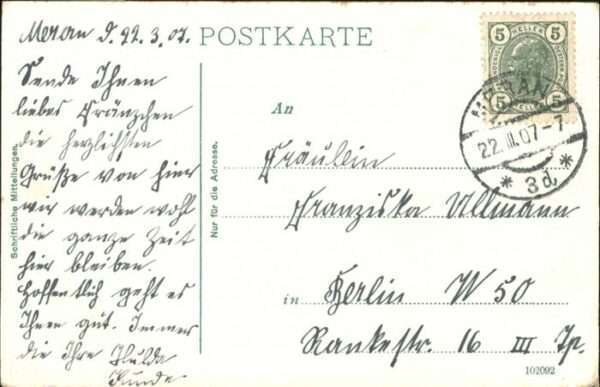 Meran d. 22.3.07.
POSTKARTE
Sende Ihnen
liebes Fränzchen
die herzlichsten
Grüße von hier
wir werden wohl
die ganze Zeit
hier bleiben.
Hoffentlich geht es
Ihnen gut. Immer
die Ihre Hulda
Schriftliche Mitteilungen.
Nur für die Adresse.
5 HELLER 5
5 HELLER 5
MERAN
22.III.07-7
* 3d *
An
Fräulein
Franziska Ullmann
in Berlin W 50
Rankestr. 16 III Tp.
102092